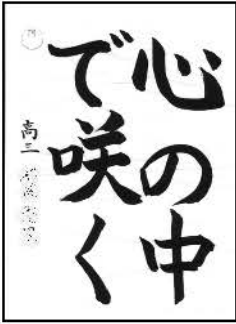 心の中
で咲く
高三